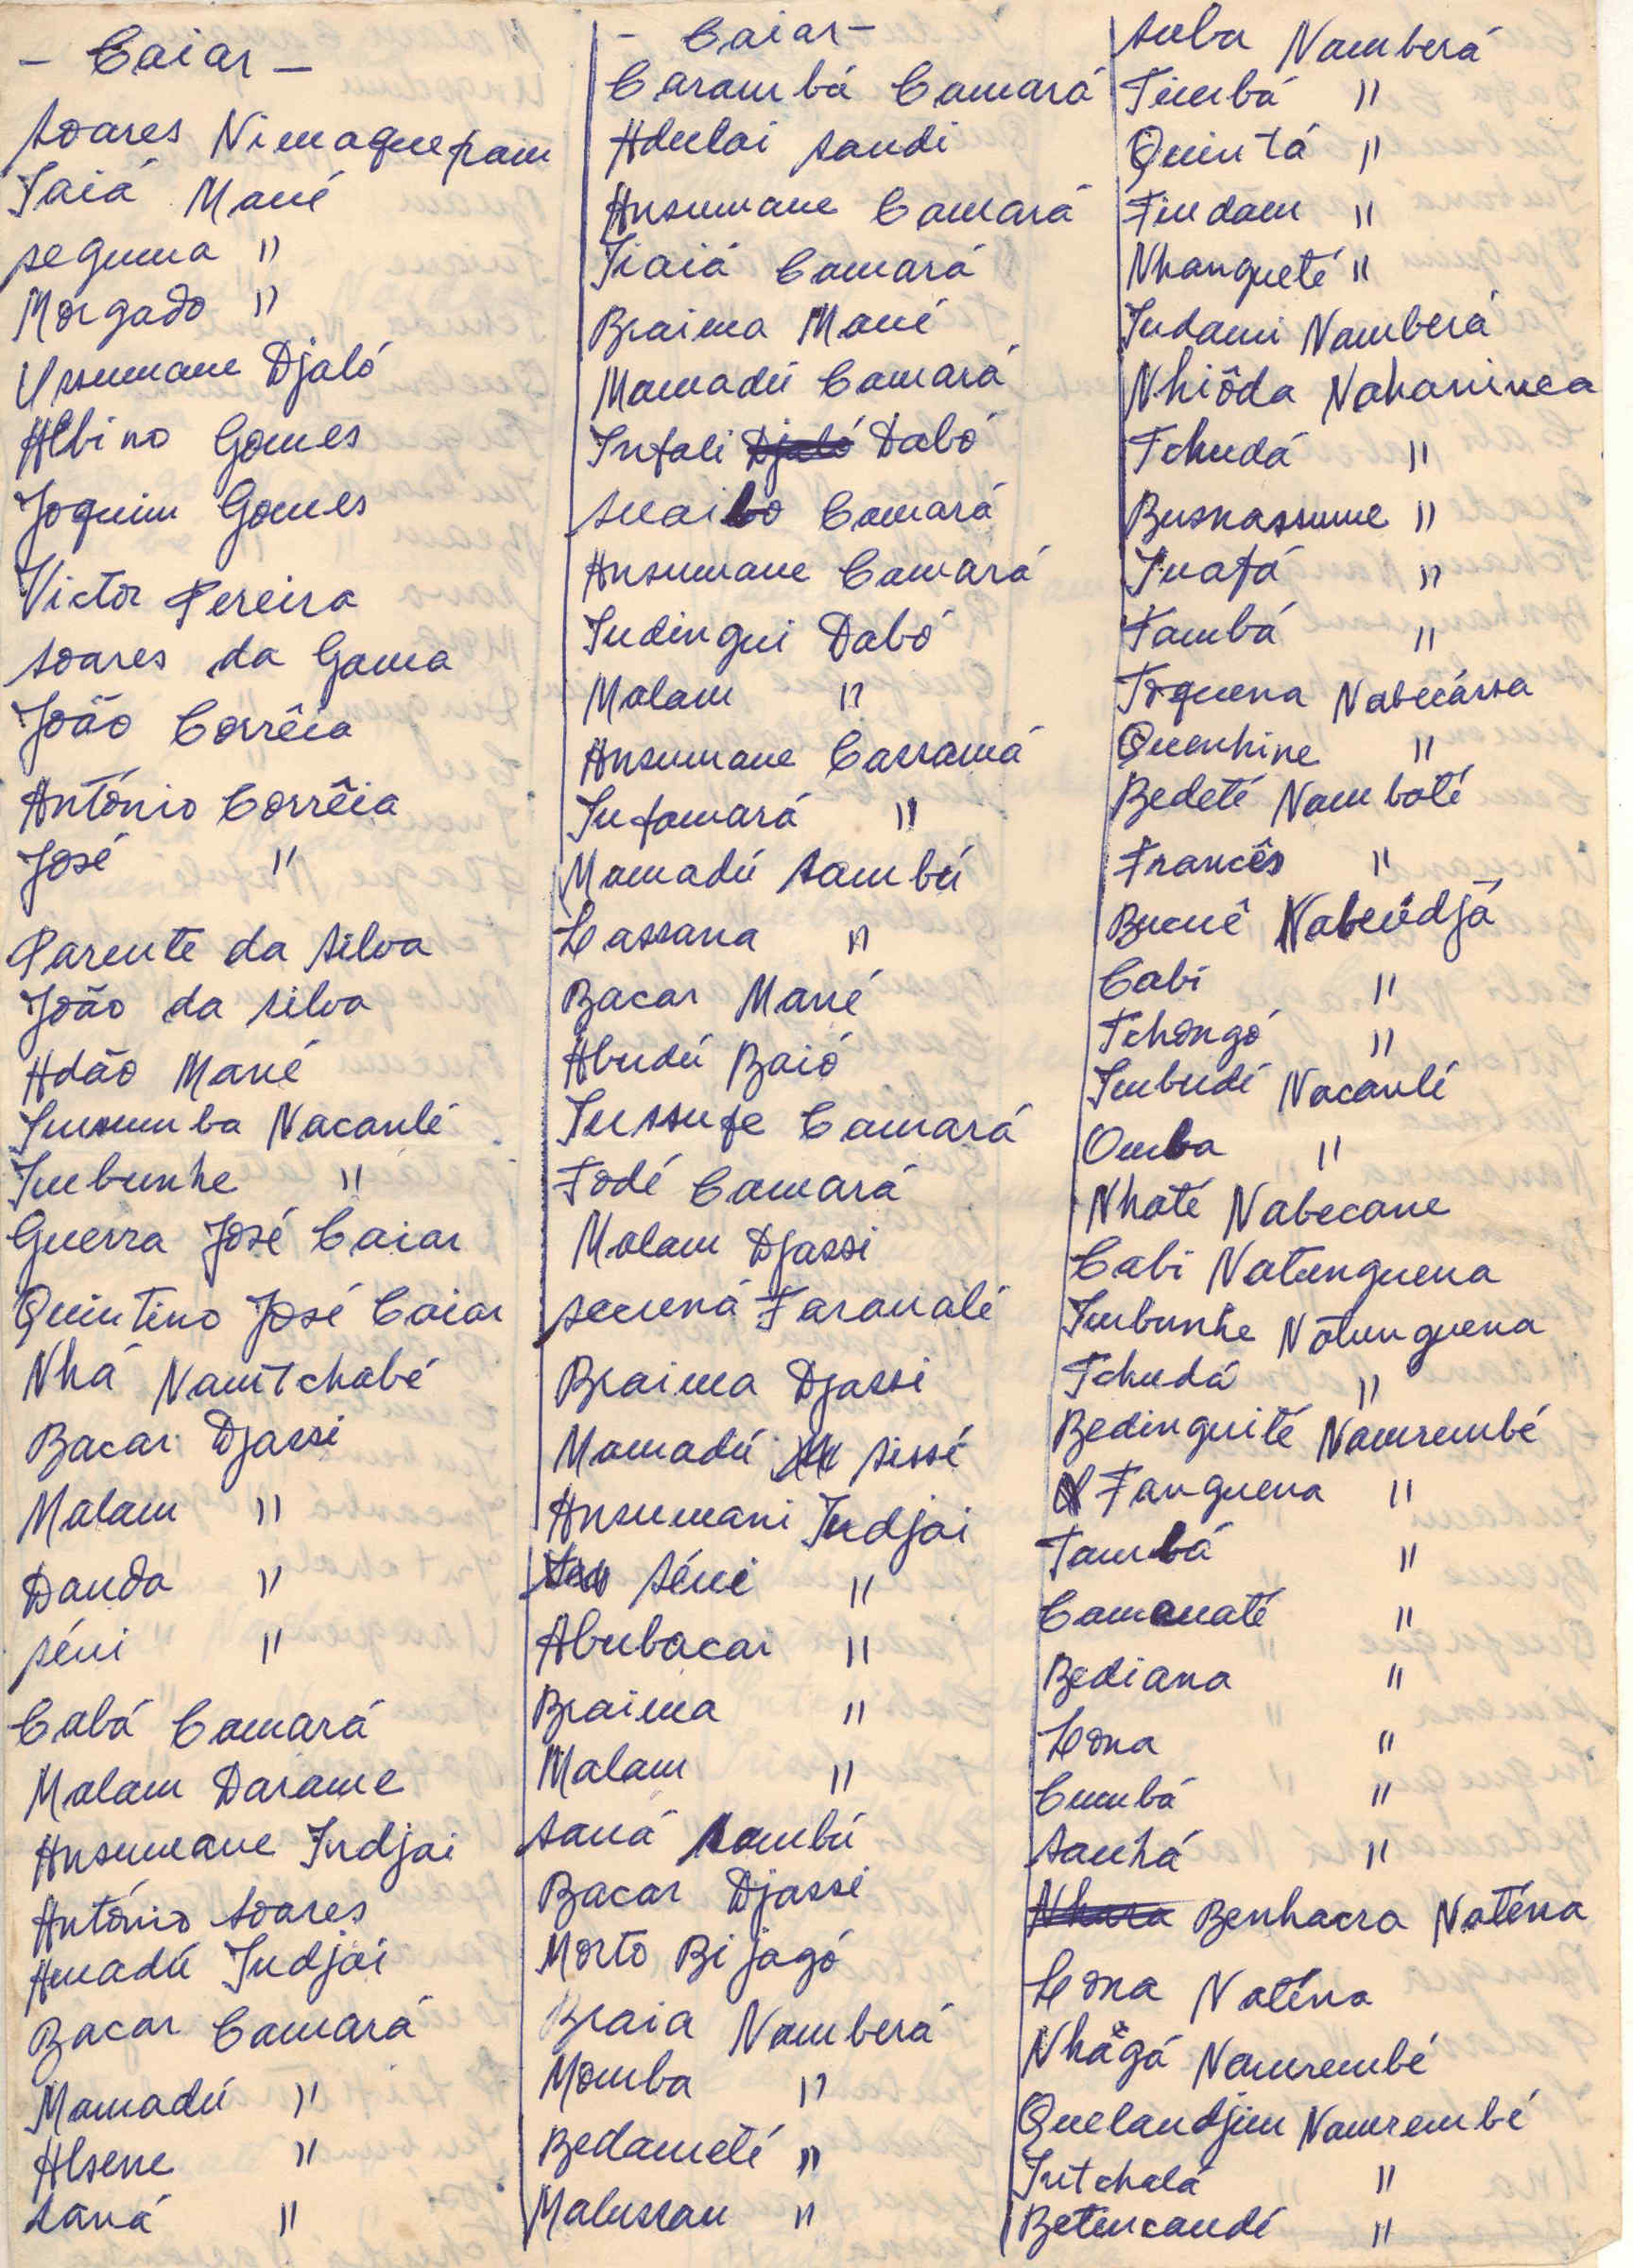 - Caiar -
Soares Nimaquepam
Iaiá Mané
Seguma "
Morgado "
Ussumane Djaló
Albino Gomes
Joquim Gomes
Victor Pereira
Soares da Gama
João Corrêia
António Corrêia
José "
Parente da Silva
João da Silva
Adão Mané
Insumba Nacanlé
Imbunhe "
Guerra José Caiar
Quintino José Caiar
Nhá Namtchabé
Bacar Djassi
Malam "
Dauda "
Séni "
Cabá Camará
Malam Darame
Ansumane Indjai
António Soares
Amadú Indjai
Bacar Camará
Mamadú "
Alsene "
Saná "
- Caiar -
Carambá Camará
Adulai Sandi
Ansumane Camará
Iiaiá Camará
Braima Mané
Mamadú Camará
Infali Djaló Dabó
Suaibo Camará
Ansumane Camará
Indingui Dabó
Malam "
Ansumane Cassamá
Infamará "
Mamadú Sambú
Lassana "
Bacar Mané
Abudú Baió
Iussufe Camará
Fodé Camará
Malam Djassi
Secuná Faranalé
Braima Djassi
Mamadú Sissé
Ansumani Indjai
Séni "
Abubacar "
Braima "
Malam "
Saná Sambú
Bacar Djassi
Morto Bijagó
Braia Namberá
Momba "
Bedameté "
Malussan "
Suba Namberá
Timbá "
Quintá "
Findam "
Nhanqueté "
Indami Namberá
Nhiôda
Tchudá "
Busnassume "
Inafá "
Tambá "
Toquena Nabecársa
Quenhine "
Bedeté Nambaté
Francês "
Bucuê
Cabi "
Tchongó "
Imbudé Nacanlé
Omba "
Nhaté Nabecane
Cabi Natunguena
Imbunhe Nátunguena
Tchudá "
Bedinguité Namrembé
Fanguena "
Tambá "
Camanaté "
Bediana "
Lona "
Cumbá "
Sanhá "
Nhara Benhacra Naténa
Lona Naténa
Nhágá Namrembé
Quelandjim Namrembé
Intchalá "
Betencandé "